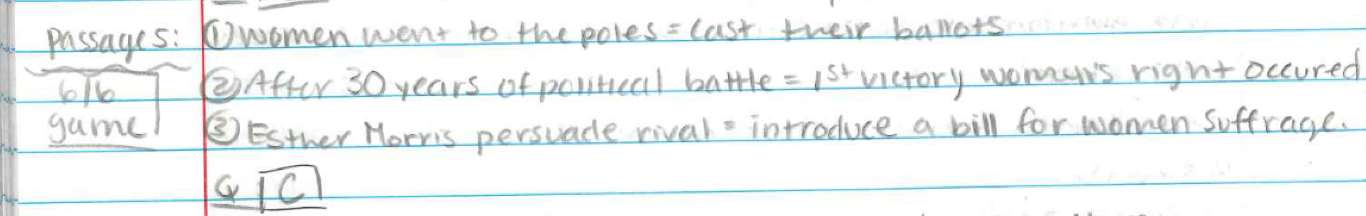 Passages: ① women went to the poles = cast their ballots
6/6 ② After 30 years of political battle = 1st victory women's right occured
game ③ Esther Morris persuade rival = introduce a bill for women suffrage.
Q | C